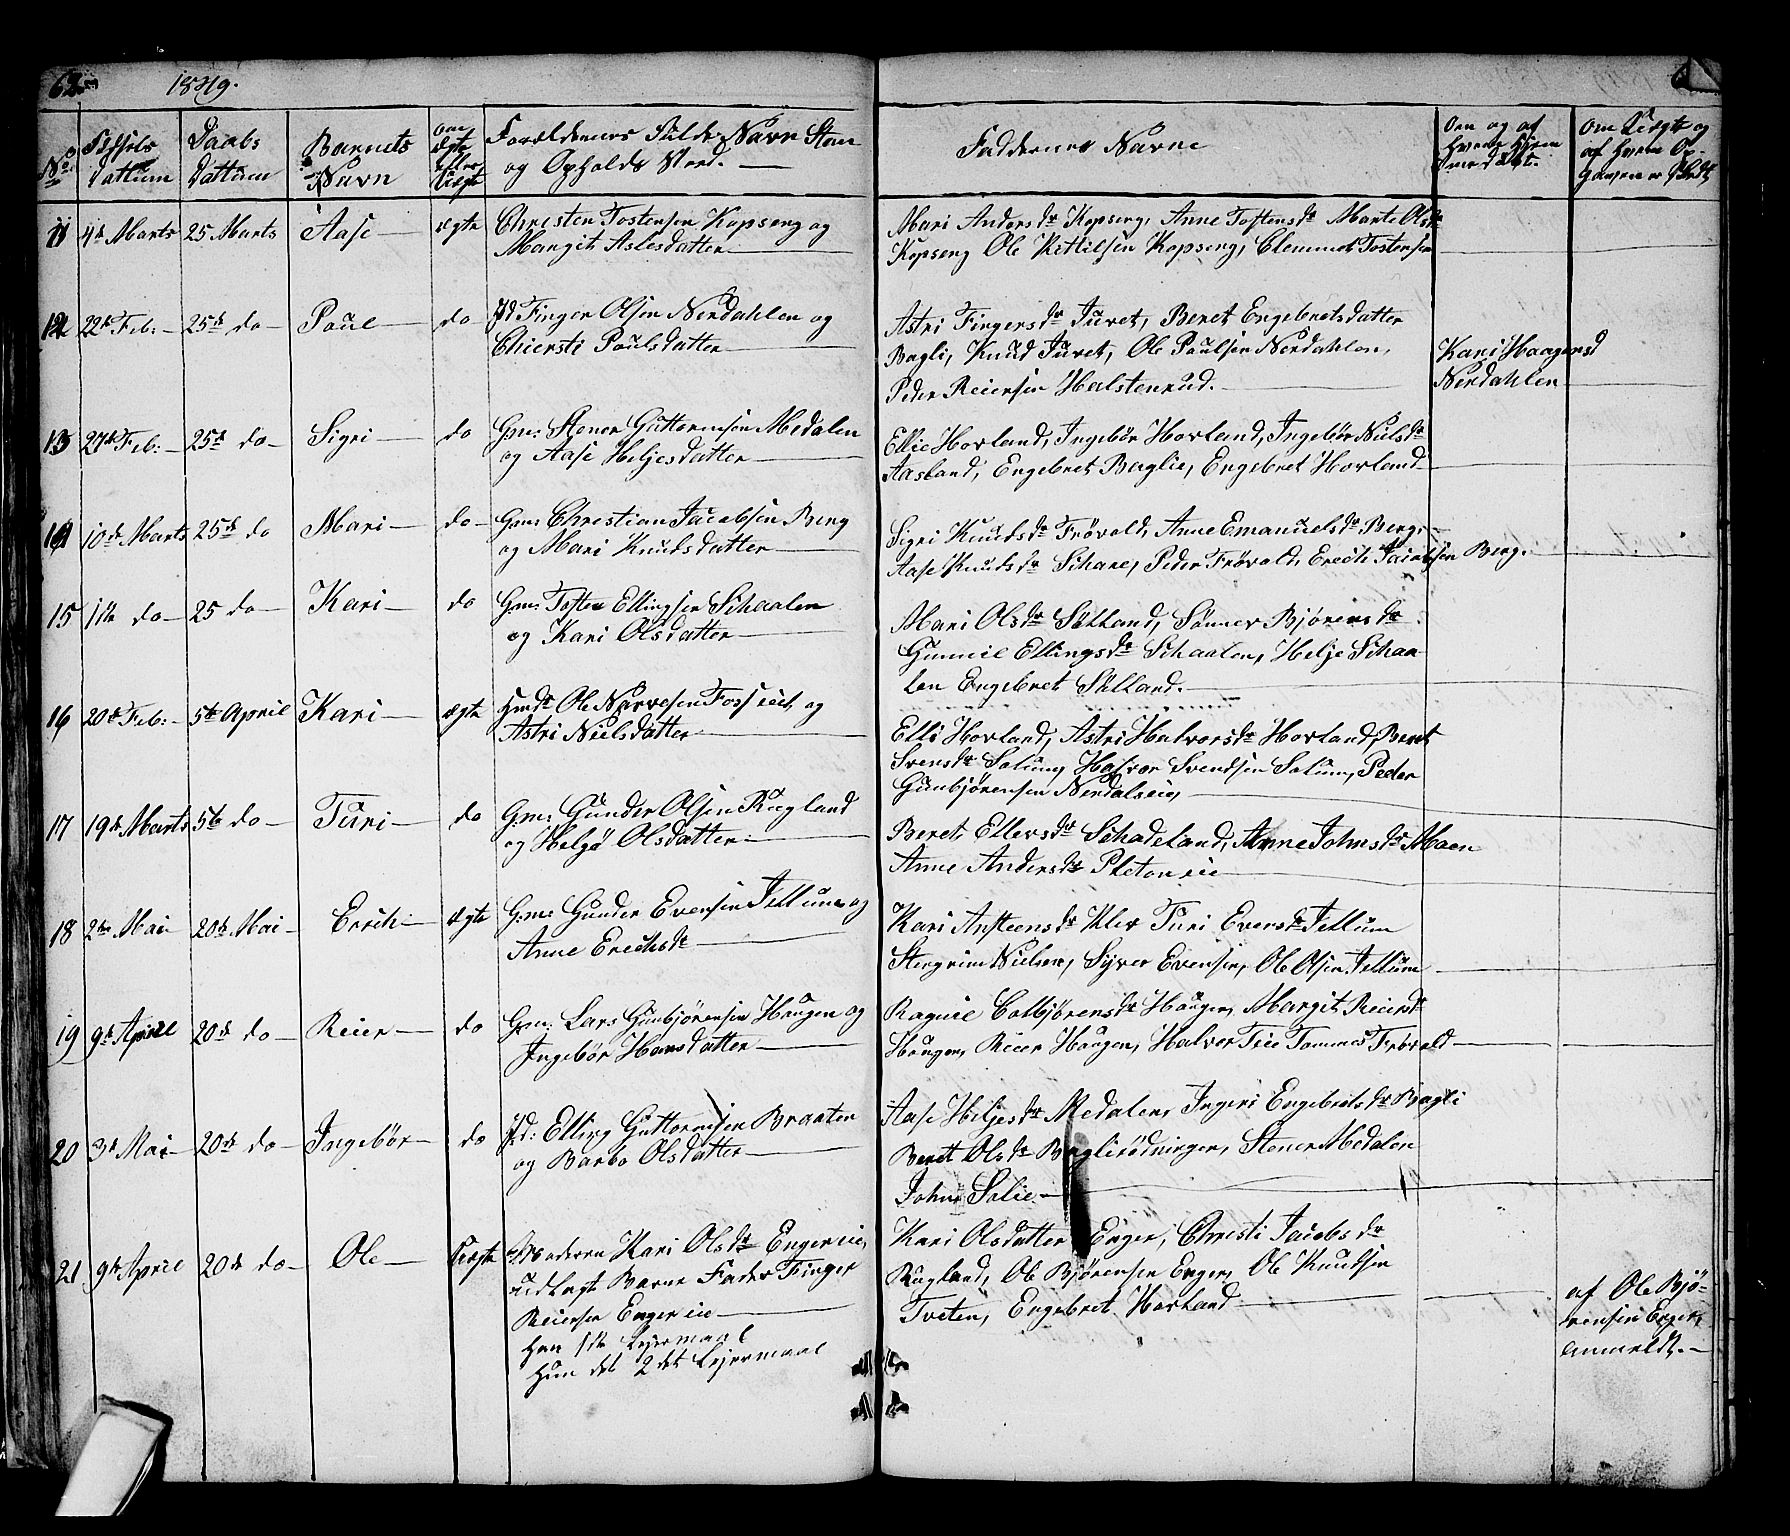 62 1849. 6
No. Fødsels Dattum | Daabs Dattum | Barnets Navn | om Ægte eller Uægte | Forældrenes Fulde Navn Stan og Opholds Sted. | Faddernes Navne | Om og af hvem hjem med døbt. | om Uægte og af hvem
11 4de Marts 25 Marts Aase ægte Christen Tostensen Kopseng og
Margit Aslesdatter
Mari Andersdr Kopseng, Anne Tostensdr Marte Olsdr
Kopseng Ole Kittilsen Kopseng, Clemmet Tostensen
12 22de Feb: 25de do Paul do Jd Finger Olsen Nerdahlen og
Chiersti Paulsdatter
Astri Fingersdr Juvet, Beret Engebretsdatter
Bagli, Knud Juvet, Ole Paulsen Nerdahlen,
Peder Reiersen Halstenrud.
Kari Haagensd
Nerdahlen
13 27de Feb: 25de do Sigri do Gm: Stener Guttormsen Medalen
og Aase Heljesdatter
Ellie Hovland, Ingebør Hovland, Ingebør Nielsdr
Aasland, Engebret Baglie, Engebret Hovland
14 10de Marts 25de do Mari do Gm: Christian Jacobsen Berg
og Mari Knudsdatter
Sigri Knudsdr Frövold, Anne Emanuelsdr Berg,
Aase Knudsdr Schare, Peder Frövold, Erech Jacobsen Berg.
15 1ste do 25 do Kari do Gm: Tosten Ellingsen Schaalen
og Kari Olsdatter
Mari Olsdr Sølland, Sönnev Bjørensdr
Gunnil Ellingsdr Schaalen, Helje Schaa-
len Engebret Sølland.
16 20de Feb: 5te April Kari ægte Hmd Ole Narvesen Fosseie, og
Astri Nielsdatter
Elli Hovland, Astri Halvorsdr Hovland, Beret
Svensdr Solum, Halvor Svendsen Solum, Peder
Gunbjörensen Nerdalseie,
17 19de Marts 5te do Turi do Gm: Gunder Olsen Rugland
og Helgö Olsdatter
Beret Ellevsdr Schadeland, Anne Johnsdr Moen
Anne Andersdr Pletoneie
18 2den Mai 20de Mai Erich ægte Gm: Gunder Evensen Jellum og
Anne Erechsdr
Kari Anstensdr Klev Turi Eversdr Jellum
Stengrim Nielsen, Syver Evensen, Ole Olsen Jellum
19 9de April 20de do Reier do Gm: Lars Gunbjörensen Haugen og
Ingebör Hansdatter
Ragnil Colbjörensdr Haugen, Margit Reiersdr
Haugen, Reier Haugen, Halvor Teie Tommes Frövold
20 3de Mai 20de do Ingebör do Jd: Elling Guttormsen Braaten
og Barbo Olsdatter
Aase Heljesdr Medalen, Ingeri Engebretsdr Bagli
Beret Olsdr Baglirödningen, Stener Medalen
John Solie
21 9de April 20de do Ole Uægte Moderen Kari Olsdr Engereie,
udlagt Barne Fader Finger
Reiersen Engereie
Han 1ste Lejermaal
Hun det 2det Lejermaal
Kari Olsdatter Enger, Christi Jacobsdr
Rugland, Ole Bjørensen Enger, Ole Knudsen
Tveten, Engebret Hovland
af Ole Bjø-
rensen Enger,
anmeldt.